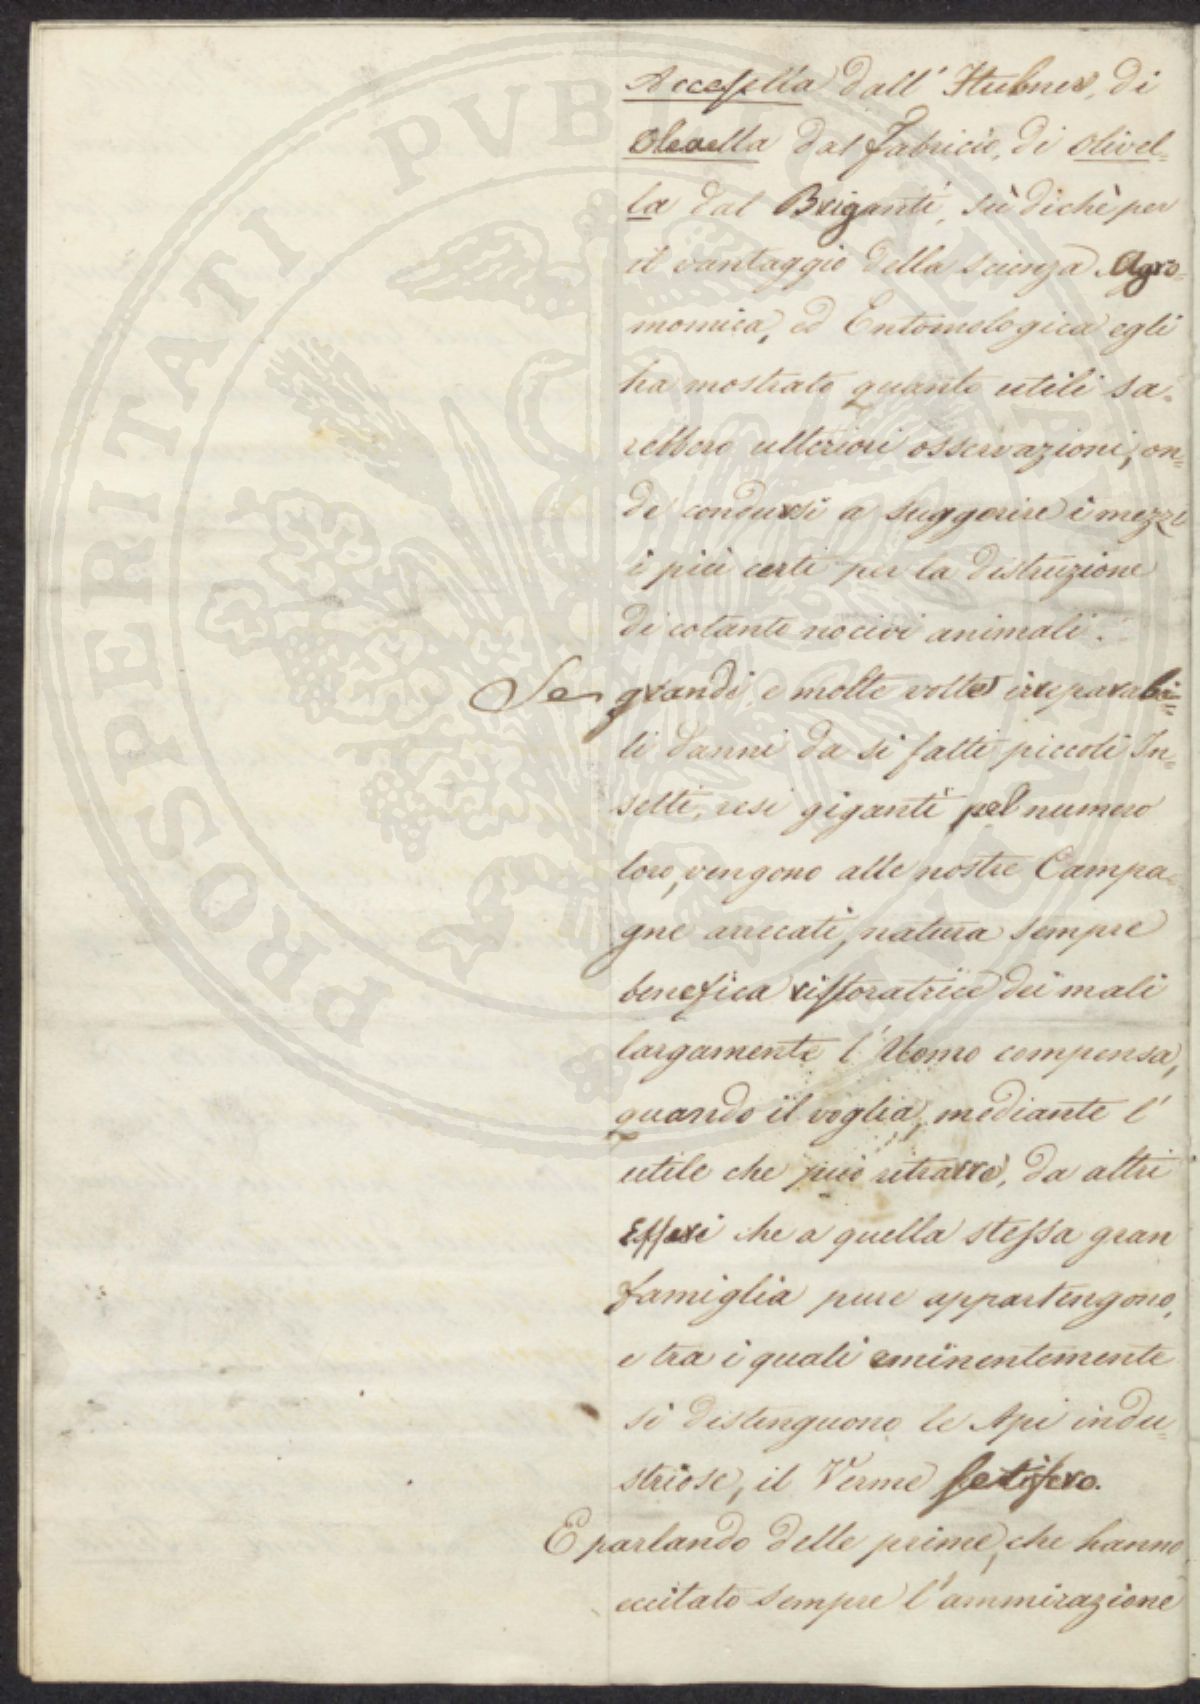 Accesella dall' Hubner, di
Oleaella dal Fabricio, di Olivel=
la dal Briganti, sù dichè per
il vantaggio della scienza Agro=
nomica, ed Entomologica egli
ha mostrato quanto utili sa=
rebbero ulteriori osservazioni, on=
de condursi a suggerire i mezzi
i più certi per la distruzione
di cotanto nocivi animali.
Se grandi, e molte volte irreparabi=
li danni da sì fatti piccoli In=
setti, resi giganti pel numero
loro, vengono alle nostre Campa=
gne arrecati, natura sempre
benefica ristoratrice dei mali
largamente l'Uomo compensa,
quando il voglia, mediante l'
utile che può ritrarre, da altri
Esseri che a quella stessa gran
famiglia pure appartengono,
e tra i quali eminentemente
si distinguono le Api indu=
striose, il Verme setifero.
E parlando delle prime, che hanno
eccitato sempre l'ammirazione
PROSPERITATI PVBLICAE